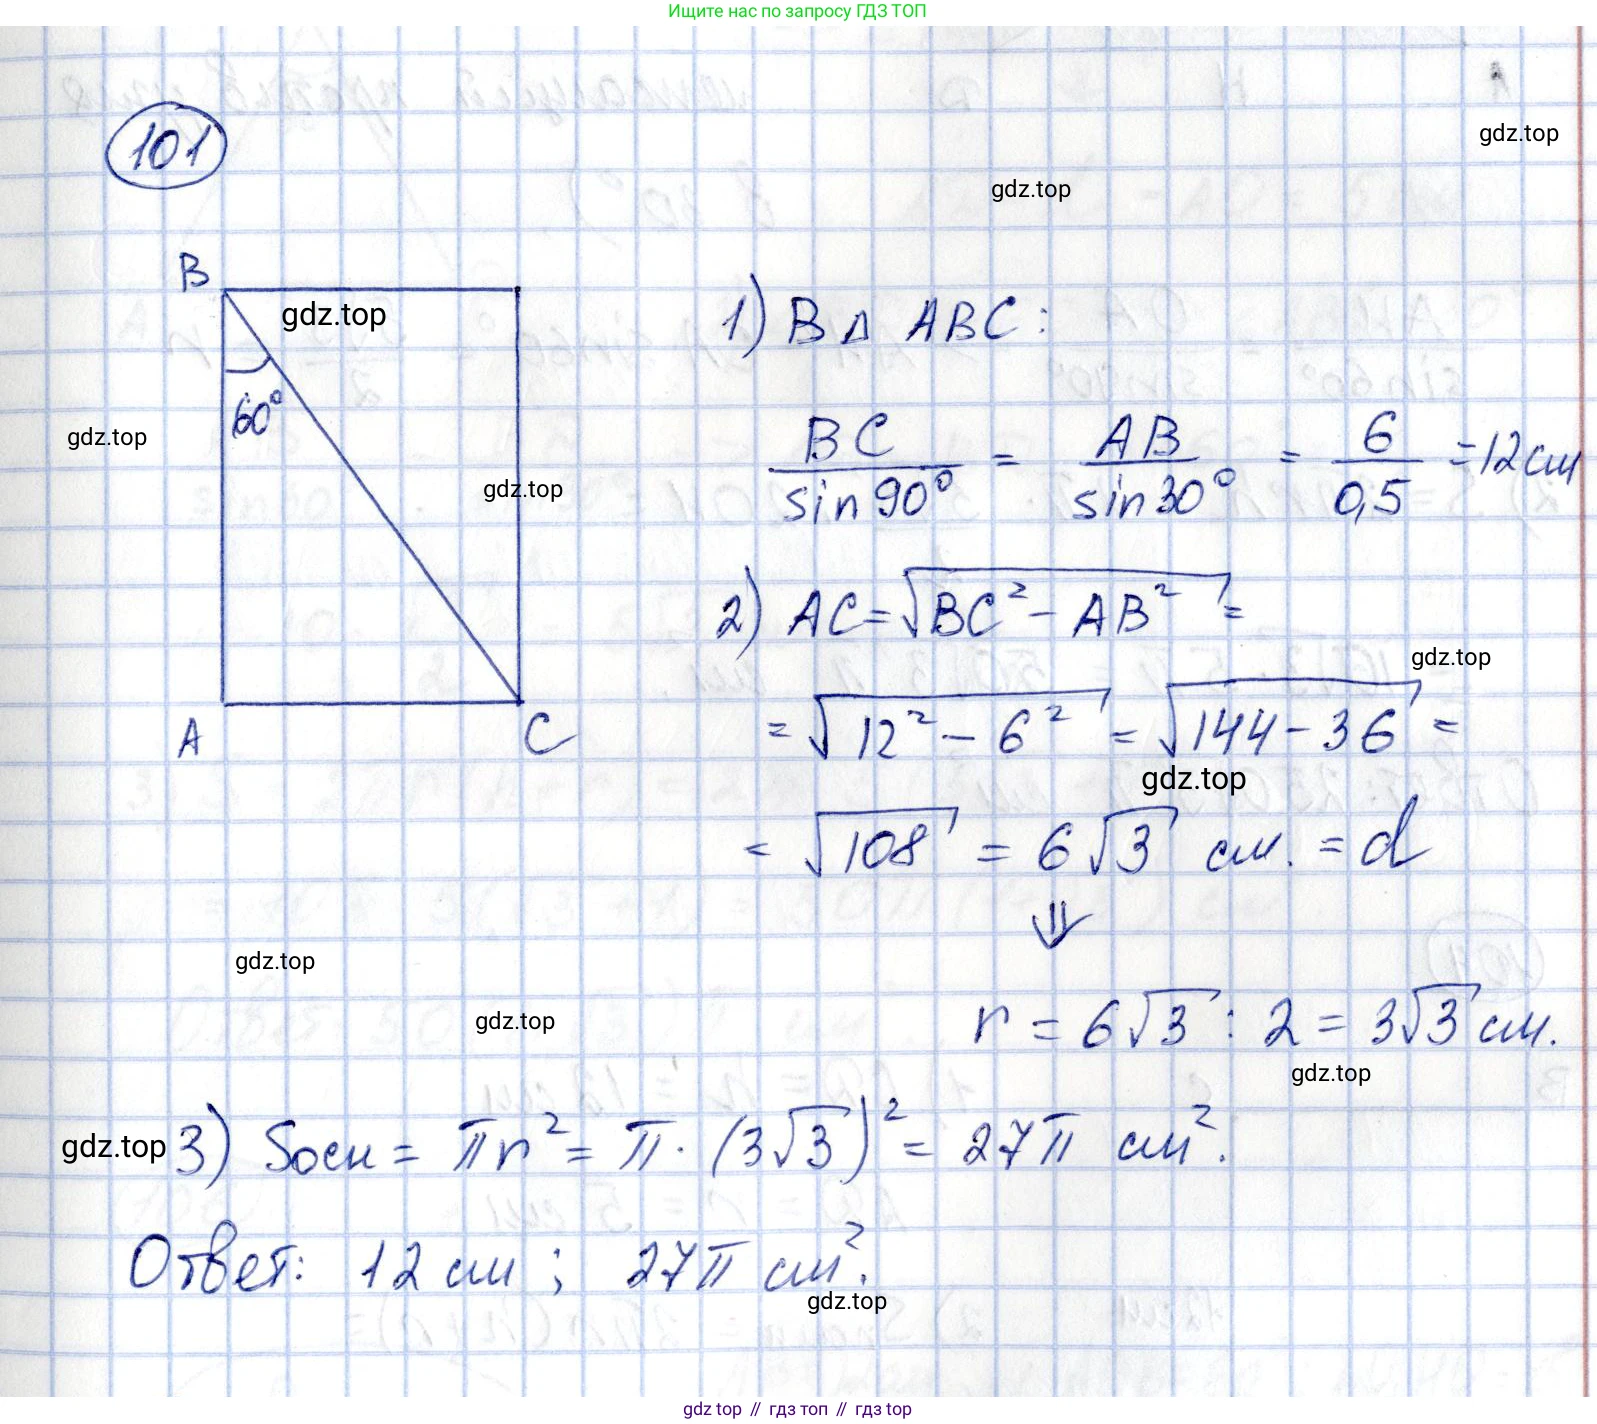 Ищите нас по запросу ГДЗ ТОП
101
gdz.top
gdz.top
B
gdz.top
60°
gdz.top
gdz.top
A
C
1) В Δ ABC:
BC / sin 90° = AB / sin 30° = 6 / 0,5 = 12 см
2) AC = √(BC² - AB²) =
gdz.top
= √(12² - 6²) = √(144 - 36) =
gdz.top
= √108 = 6√3 см. = d
⇓
gdz.top
gdz.top
r = 6√3 : 2 = 3√3 см.
gdz.top
gdz.top
3) Sосн = πr² = π · (3√3)² = 27π см².
Ответ: 12 см ; 27π см².
gdz.top
gdz top // гдз топ // гдз top